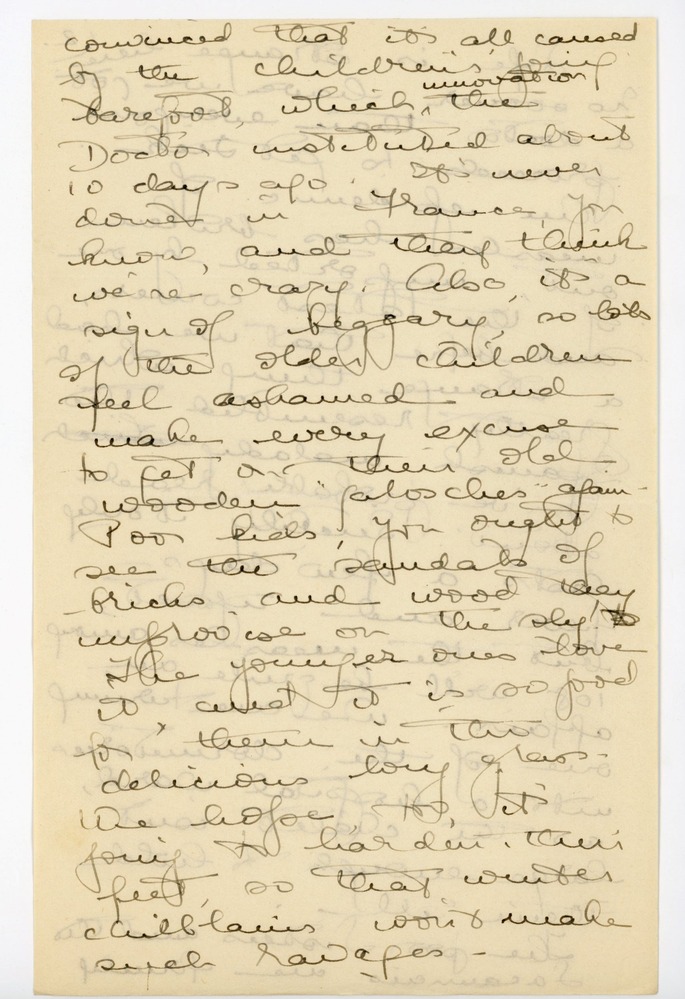 convinced that it's all caused
by the children's going
innovation
barefoot, which, the
Doctor instituted about
10 days ago. It's never
done in France, you
know, and they think
we're crazy. Also, it's a
sign of beggary, so lots
of the older children
feel ashamed and
make every excuse
to get on their old
wooden "galosches" again -
Poor kids, you ought to
see the sandals of
bricks and wood they
improvise on the sly!
The younger ones love
it, and it is so good
for them in this
delicious long grass.
We hope, too, it's
going to harden their
feet, so that winter
chilblains won't make
such ravages -